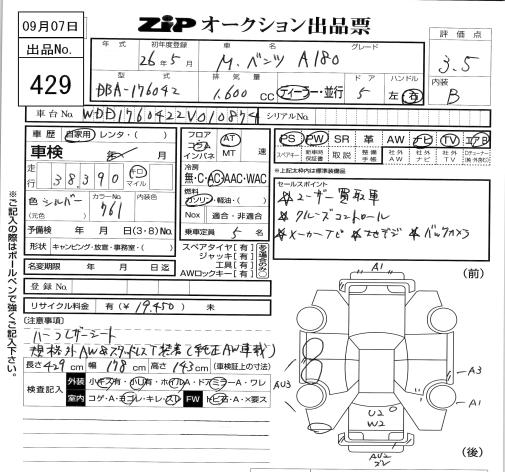 09月07日
ZiP オークション出品票
出品No.
429
年式 初年度登録 車名 グレード
26年5月 M.ベンツ A180
型式 排気量 ドア ハンドル
DBA-176042 1,600 CC ディーラー・並行 5 左 右
評価点
3.5
内装
B
車台No. WDD1760422V010874 シリアルNo.
車歴 自家用・レンタ・( )
車検 年 月
走行 38,390 キロ マイル
色 シルバー カラーNo. 761 内装色
(元色)
予備検 年 月 日(3・8)No.
形状 キャンピング・放宣・事務室・( )
名変期限 年 月 日迄
登録No.
リサイクル料金 有(¥19,450) 未
フロア コラム インパネ AT MT 速
冷房
無・C・AC・AAC・WAC
燃料
ガソリン・軽油・( )
Nox 適合・非適合
乗車定員 5 名
スペアタイヤ【有】
ジャッキ【有】
工具【有】
AWロックキー【有】
ある場合のみ○
PS PW SR 革 AW ナビ TV エアB
スペアキー 新車時保証書 取説 整備手帳 社外AW 社外ナビ 社外TV
※上記太枠内は標準装備品
セールスポイント
☆ユーザー買取車
☆クルーズコントロール
☆メーカーナビ ☆フルセグ ☆バックカメラ
(注意事項)
ハーフレザーシート
規格外AW&スタッドレスT装着(純正AW車載)
長さ 429 cm 幅 178 cm 高さ 143 cm (車検証上の寸法)
検査記入 外装 小キズ有・小凹有・ホイルA・ドアミラーA・ワレ
室内 コゲ・A・ヨゴレ・キレ・スレ FW トビ石・A・X要ス
※ご記入の際はボールペンで強くご記入下さい。
(前)
A1
A3
A1
AU3
U2
W2
AU2
(後)